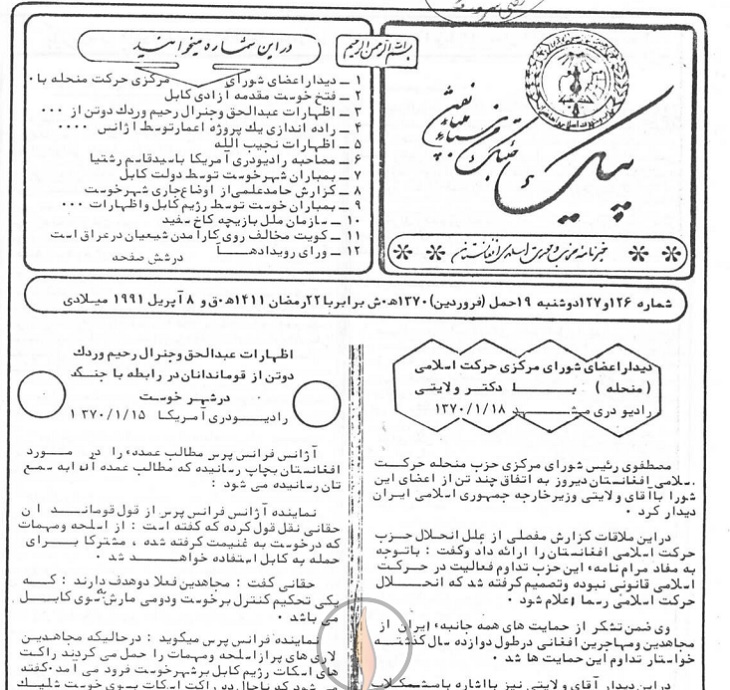 بسم الله الرحمن الرحیم
پیک
خبرنامه خبری حرکت اسلامی افغانستان
در این شماره میخوانید
۱ ــ دیدار اعضای شورای مرکزی حرکت منحله با۰
۲ ــ فتح خوست مقدمه آزادی کابل
۳ ــ اظهارات عبدالحق وجنرال رحیم وردك دوتن از ۰۰۰
۴ ــ راه اندازی یك پروژه اعمار توسط اژانس ۰۰۰۰
۵ ــ اظهارات نجیب الله
۶ ــ مصاحبه رادیودری آمریکا باسیدقاسم رشتیا
۷ ــ بمباران شهرخوست توسط دولت کابل
۸ ــ گزارش حامدعلمی از اوضاع جاری شهرخوست
۹ ــ بمباران خوست توسط رژیم کابل واظهارات ۰۰۰
۱۰ ــ سازمان ملل بازیچه کاخ سفید
۱۱ ــ کویت مخالف روی کارآمدن شیعیان درعراق است
۱۲ ــ ورای رویدادهــا
درشش صفحه
شماره ۱۲۶و۱۲۷دوشنبه ۱۹حمل (فروردین)۱۳۷۰ه‍۰ش برابربا۲۲رمضان ۱۴۱۱ه‍۰ق و ۸ آپریل ۱۹۹۱ میلادی
دیداراعضای شورای مرکزی حرکت اسلامی
(منحله) بــا دکتر ولایتی
رادیو دری مشــهد ۱۳۷۰/۱/۱۸
مصطفوی رئیس شورای مرکزی حزب منحله حرکت
اسلامی افغانستان دیروز به اتفاق چند تن از اعضای این
شورا باآقای ولایتی وزیرخارجه جمهوری اسلامی ایران
دیدار کرد ۰
دراین ملاقات گزارش مفصلی از علل انحلال حزب
حرکت اسلامی افغانستان را ارائه داد وگفت : باتوجه
به مفاد مرام نامهء این حزب تداوم فعالیت در حرکت
اسلامی قانونی نبوده وتصمیم گرفته شد که انحــلال
حرکت اسلامی رسما اعلام شود ۰
وی ضمن تشکر از حمایت های همه جانبهء ایران از
مجاهدین ومهاجرین افغانی درطول دوازده سال گذشتــه
خواستار تداوم این حمایت ها شد ۰
دراین دیدار آقای ولایتی نیز بااشاره بامشکلات
اظهارات عبدالحق وجنرال رحیم وردك
دوتن از قوماندانان در رابطه با جنگ
درشهر خوست
رادیــودری آمریکا ۱۳۷۰/۱/۱۵
آژانس فرانس پرس مطالب عمدهء را در مــورد
افغانستان بچاپ رسانیده که مطالب عمده آنرا به سمع
تان رسانیده می شود :
نماینده آژانس فرانس پرس از قول قومانــدان
حقانی نقل قول کرده که گفته است : از اسلحه ومهمات
که درخوست به غنیمت گرفته شده ، مشترکا بــرای
حمله به کابل استفاده خواهــد شد ۰
حقانی گفت : مجاهدین فعلا دوهدف دارند : کــه
یکی تحکیم کنترل برخوست ودومی مارش بسوی کابــل
می باشد ۰
نماینده فرانس پرس میگوید : درحالیکه مجاهدین
لاری های پرازاسلحه ومهمات را حمل می کردند راکت
های اسکات رژیم کابل برشهرخوست فرود می آمد۰گفته
می شود که تاحال ده راکت اسکات بسوی خوست شلیــك